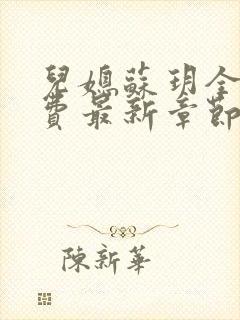 兒媳蘇玥全
費最新章節
陳新華